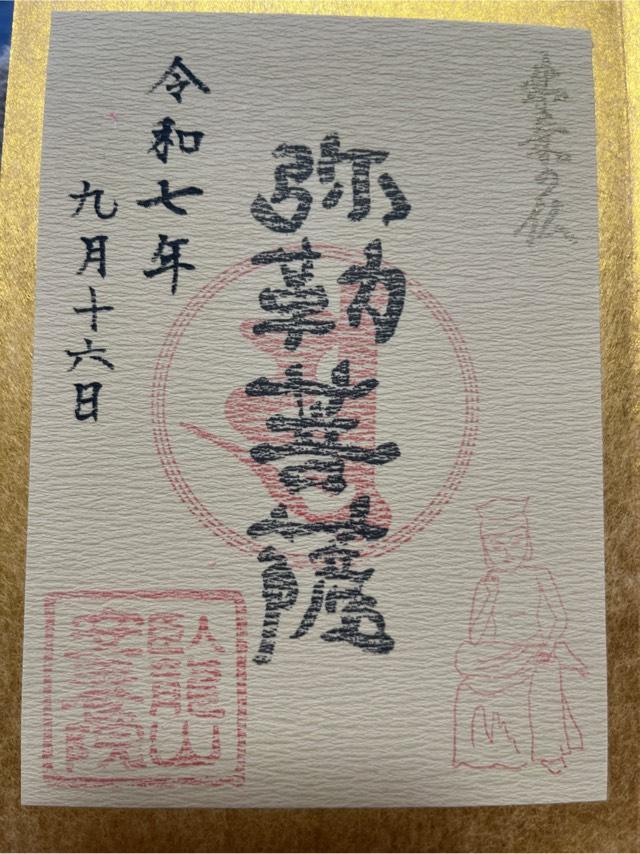 の仏
弥勒菩薩
令和七年
九月十六日
臥龍山
安養院